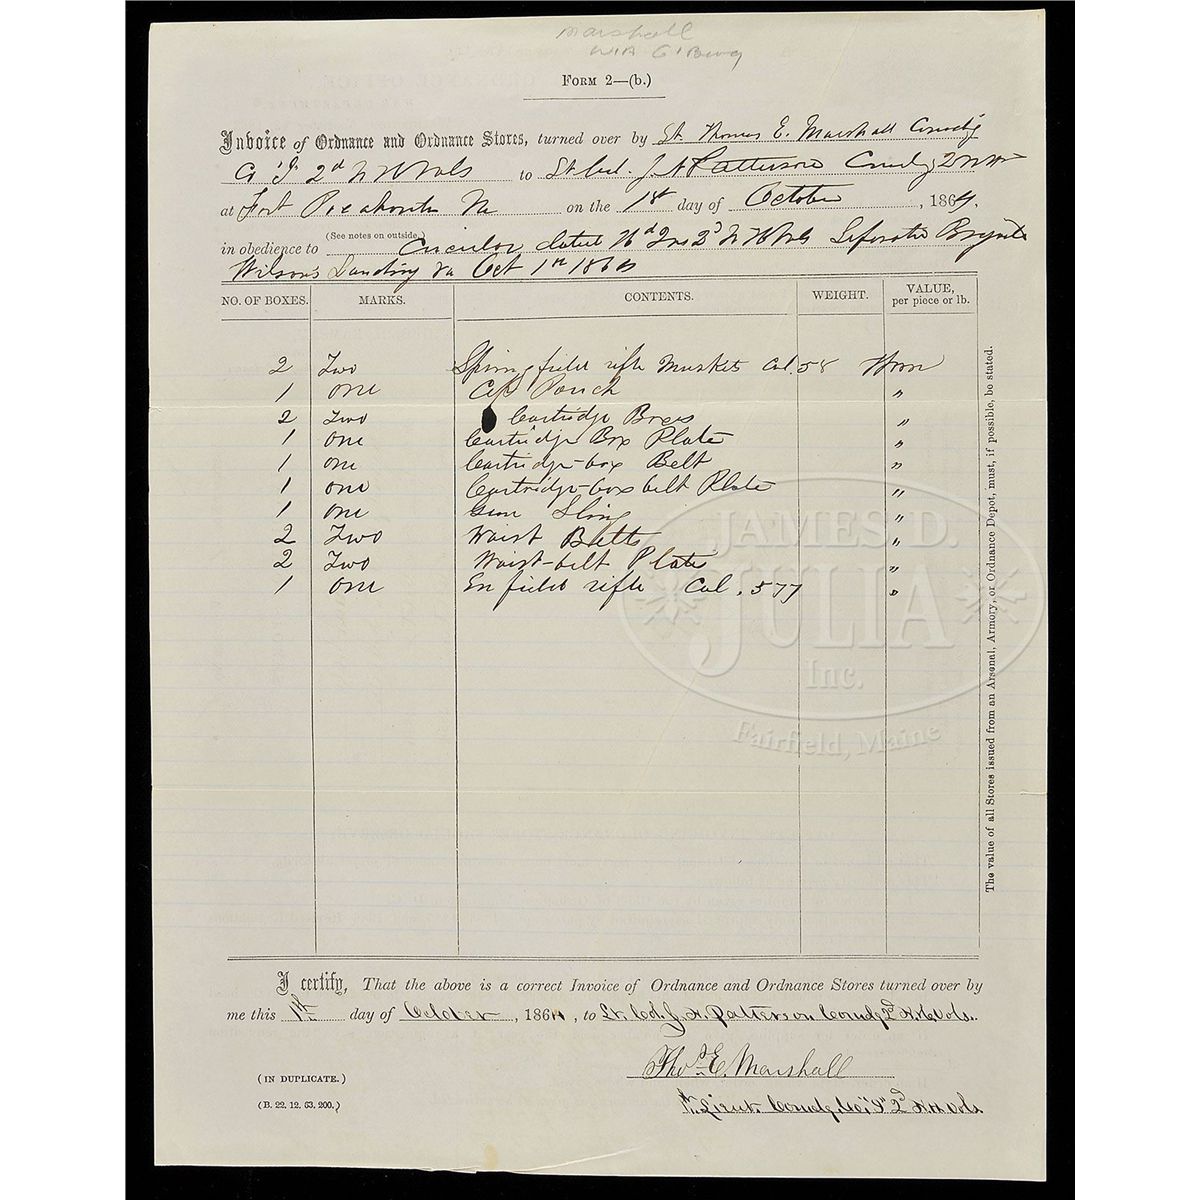 Marshall
WIA G'Burg
Form 2—(b.)
Invoice of Ordnance and Ordnance Stores, turned over by Lt. Thomas E. Marshall Comdg
Co "I" 2d N H Vols to Lt Col. J. N Patterson Comdg 2 N H V
at Fort Pocahontas Va on the 1st day of October, 1864,
(See notes on outside.)
in obedience to Circular dated Hd Qrs 2d N H Vols Separate Brigade
Wilson's Landing Va Oct 1st 1864
NO. OF BOXES. MARKS. CONTENTS. WEIGHT. VALUE, per piece or lb.
2 Two Springfield rifle Muskets Cal. 58
1 one Cap Pouch "
2 Two Cartridge Boxes "
1 one Cartridge Box Plate "
1 one Cartridge-box Belt "
1 one Cartridge-box belt Plate "
1 one Gun Sling "
2 Two Waist Belts "
2 Two Waist-belt Plates "
1 one Enfield rifle Cal .577 "
The value of all Stores issued from an Arsenal, Armory, or Ordnance Depot, must, if possible, be stated.
JAMES D.
JULIA
Inc.
Fairfield, Maine
I certify, That the above is a correct Invoice of Ordnance and Ordnance Stores turned over by
me this 1st day of October, 1864, to Lt. Col. J. N. Patterson Comdg 2d N. H. Vols.
Thos E. Marshall
(IN DUPLICATE.)
1st Lieut. Comdg Co. "I" 2d N H Vols
(B. 22. 12. 63. 200.)